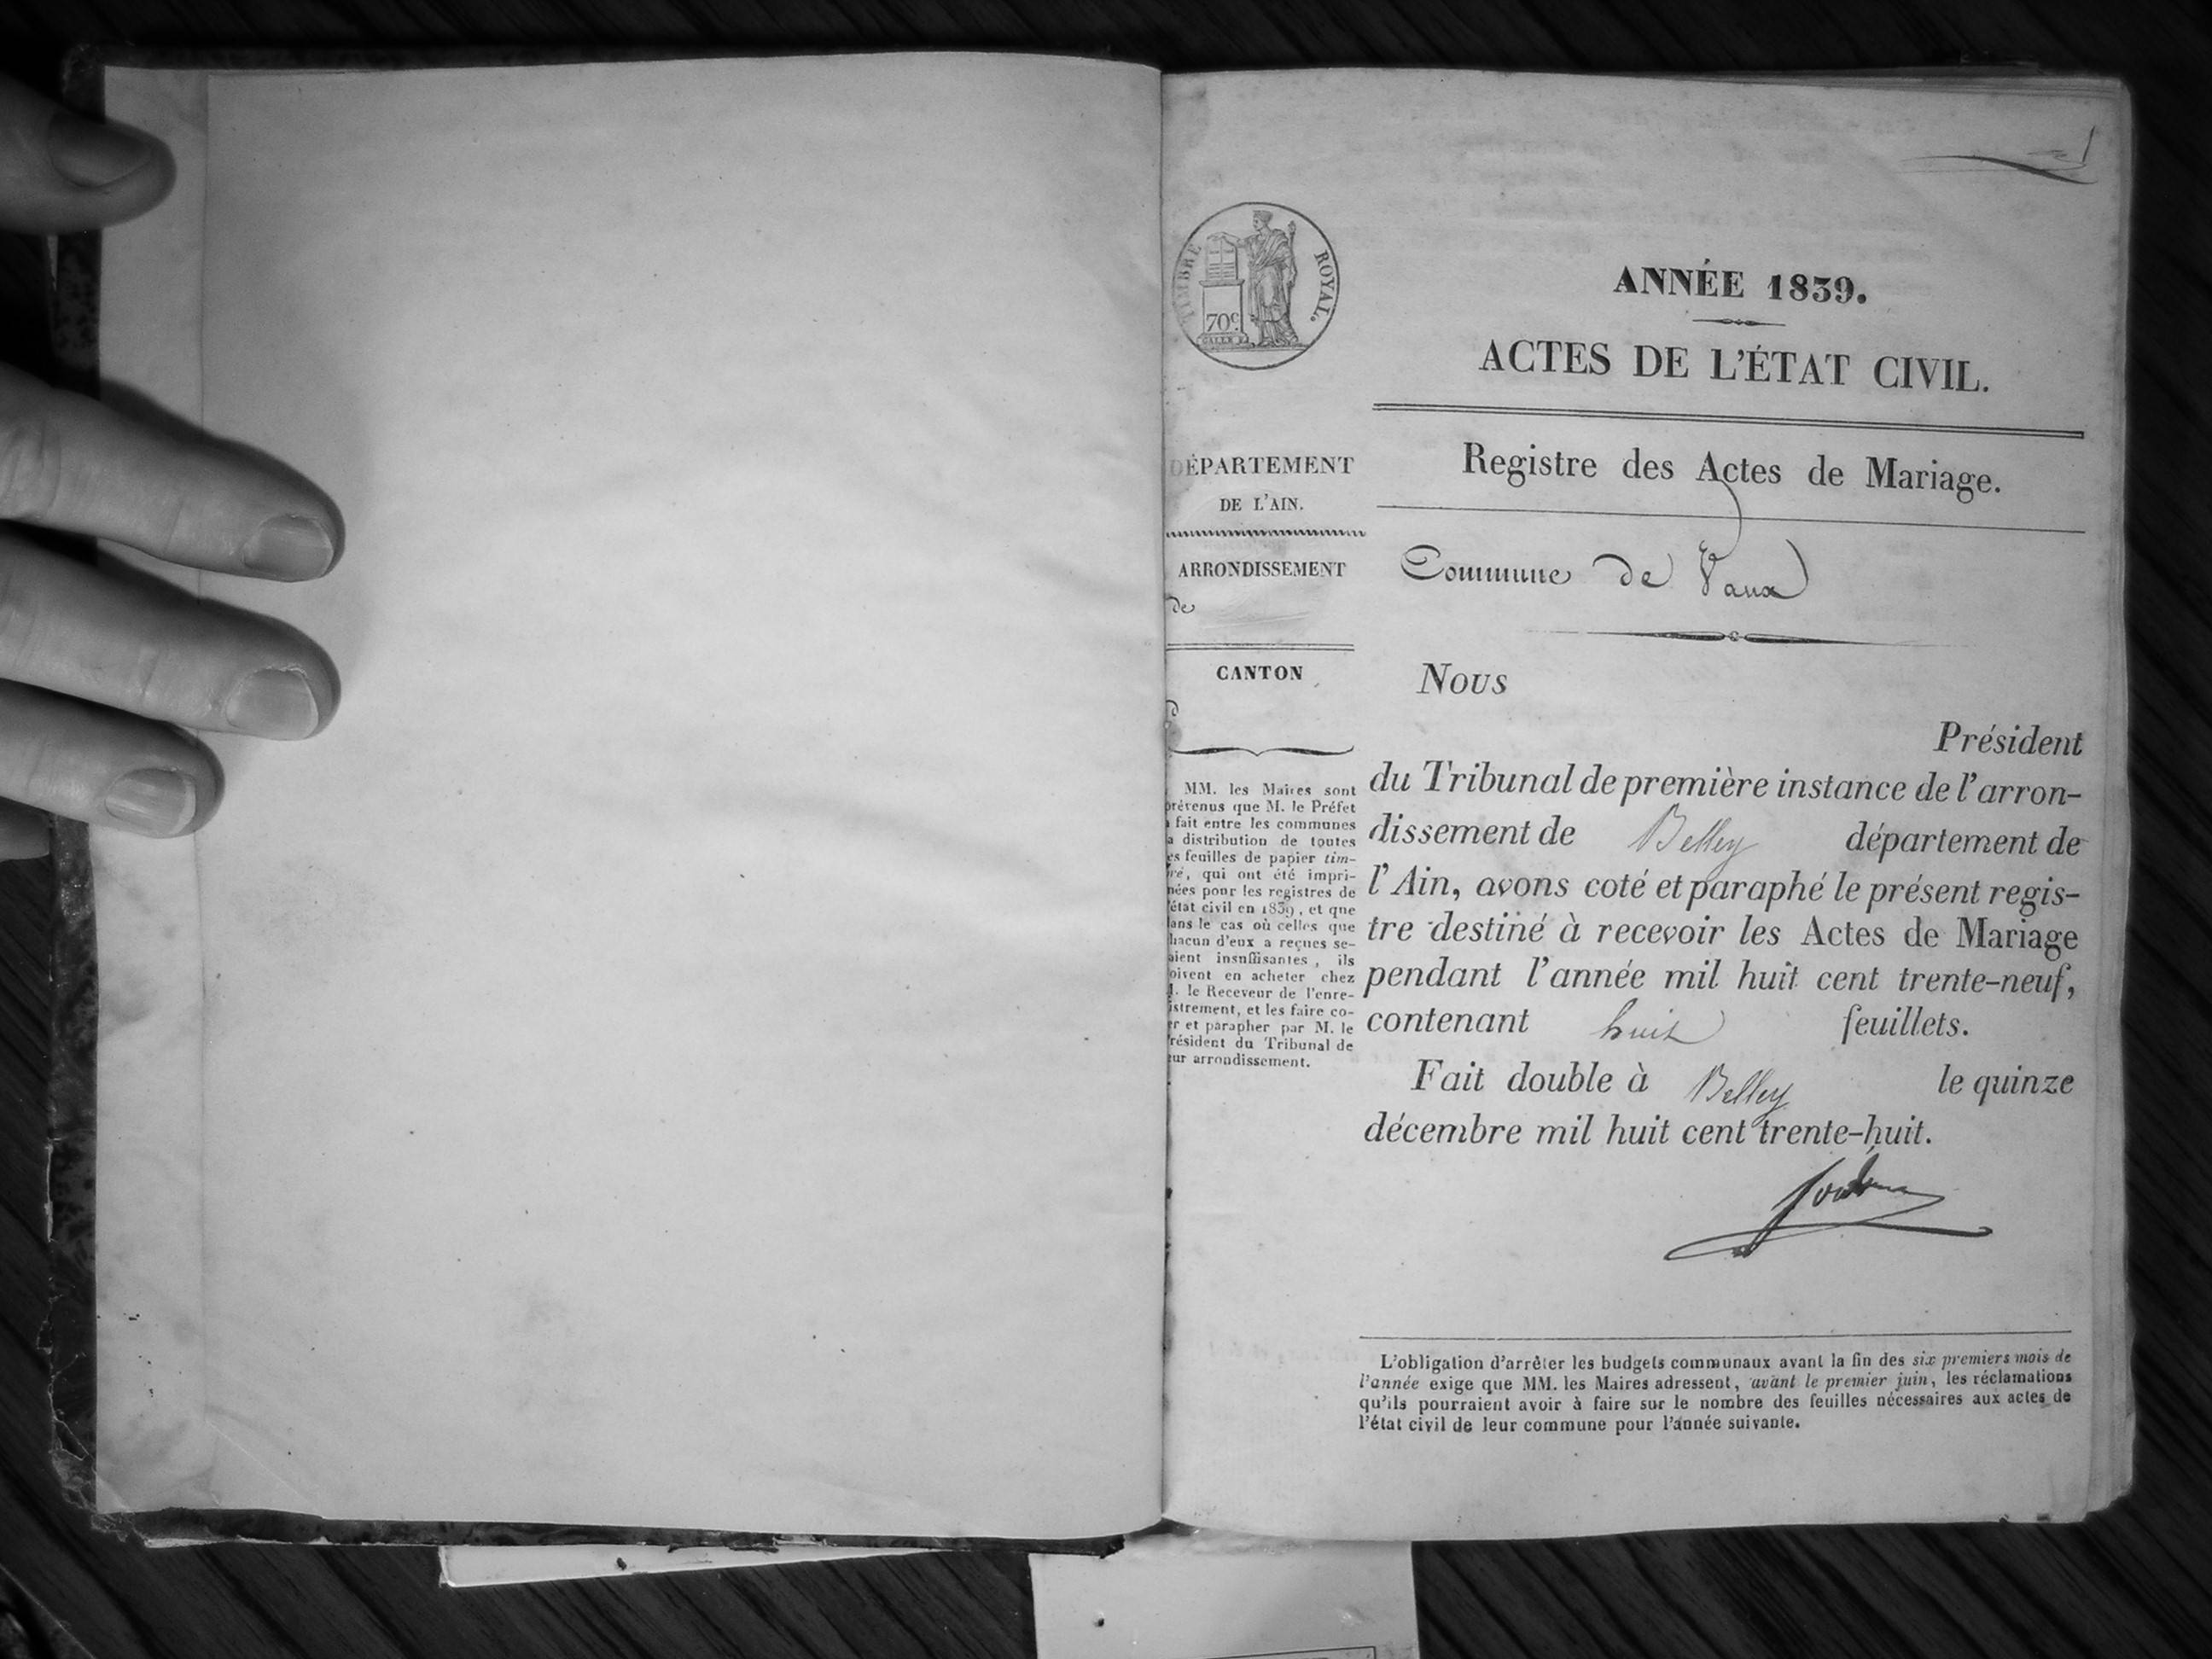 1
TIMBRE ROYAL.
70c
ANNÉE 1839.
ACTES DE L'ÉTAT CIVIL.
Registre des Actes de Mariage.
Commune de Vaux
DÉPARTEMENT
DE L'AIN.
ARRONDISSEMENT
de
CANTON
MM. les Maires sont
prévenus que M. le Préfet
a fait entre les communes
la distribution de toutes
les feuilles de papier tim-
bré, qui ont été impri-
mées pour les registres de
l'état civil en 1839, et que
dans le cas où celles que
chacun d'eux a reçues se-
raient insuffisantes, ils
doivent en acheter chez
M. le Receveur de l'enre-
gistrement, et les faire co-
ter et parapher par M. le
Président du Tribunal de
leur arrondissement.
Nous
Président
du Tribunal de première instance de l'arron-
dissement de Belley département de
l'Ain, avons coté et paraphé le présent regis-
tre destiné à recevoir les Actes de Mariage
pendant l'année mil huit cent trente-neuf,
contenant huit feuillets.
Fait double à Belley le quinze
décembre mil huit cent trente-huit.
L'obligation d'arrêter les budgets communaux avant la fin des six premiers mois de
l'année exige que MM. les Maires adressent, avant le premier juin, les réclamations
qu'ils pourraient avoir à faire sur le nombre des feuilles nécessaires aux actes de
l'état civil de leur commune pour l'année suivante.